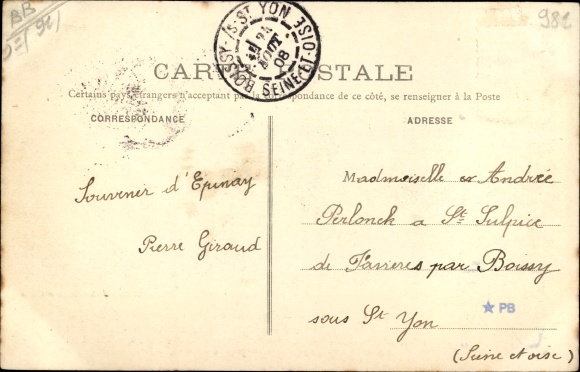 BB
982
BOISSY-S-ST YON
AOUT
08
SEINE-ET-OISE
CARTE POSTALE
Certains pays étrangers n'acceptant pas la correspondance de ce côté, se renseigner à la Poste
CORRESPONDANCE
ADRESSE
Souvenir d'Epinay
Pierre Giraud
Madmoiselle Andrée
Perlonck a St Sulpice
de Favieres par Boissy
sous St Yon
(Seine et oise)
★ PB